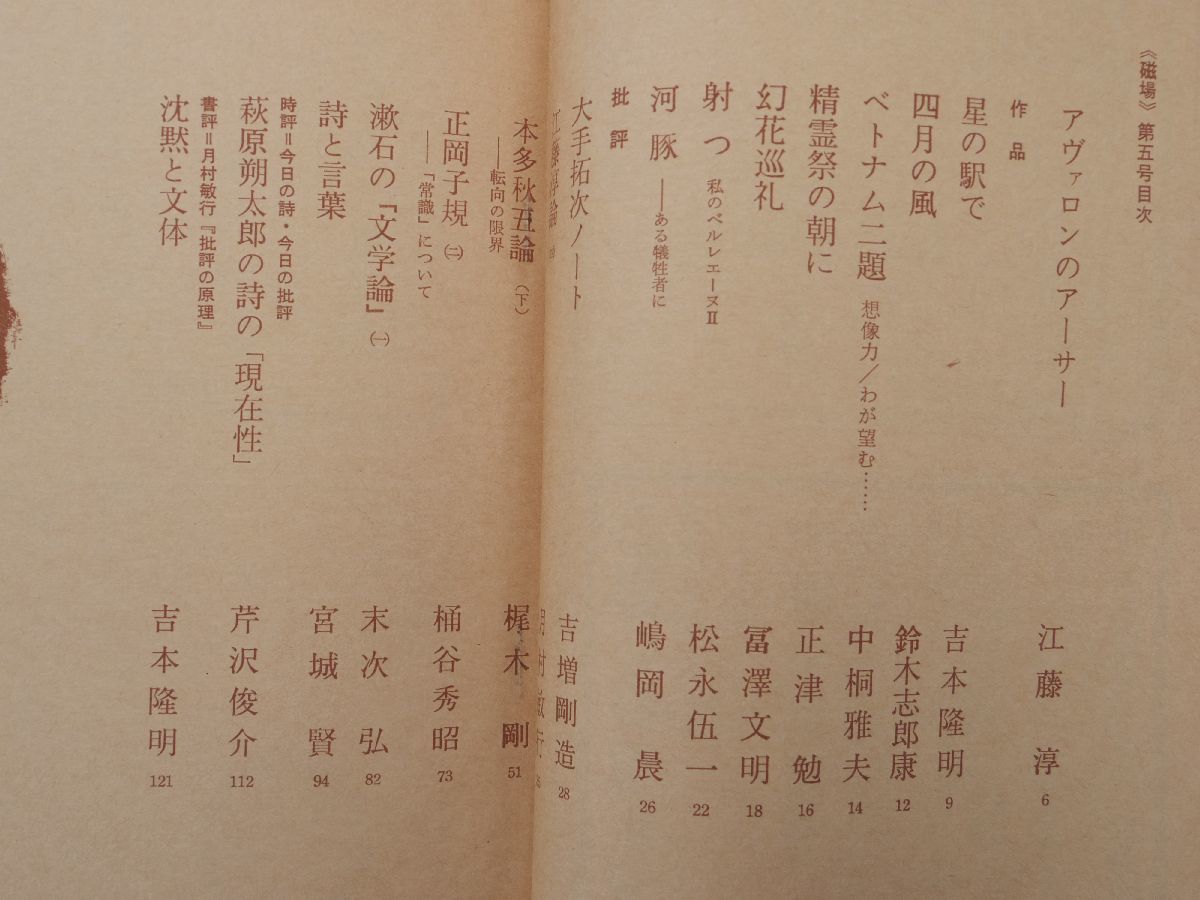 《磁場》第五号目次
アヴァロンのアーサー 江藤淳 6
作品
星の駅で 吉本隆明 9
四月の風 鈴木志郎康 12
ベトナム二題 想像力／わが望む…… 中桐雅夫 14
精霊祭の朝に 正津勉 16
幻花巡礼 冨澤文明 18
射つ 私のベルレエーヌⅡ 松永伍一 22
河豚 ――ある犠牲者に 嶋岡晨 26
批評
大手拓次ノート 吉増剛造 28
本多秋五論（下） 梶木剛 51
――転向の限界
正岡子規（二） 桶谷秀昭 73
――「常識」について
漱石の「文学論」（一） 末次弘 82
詩と言葉 宮城賢 94
時評＝今日の詩・今日の批評
萩原朔太郎の詩の「現在性」 芹沢俊介 112
書評＝月村敏行『批評の原理』
沈黙と文体 吉本隆明 121